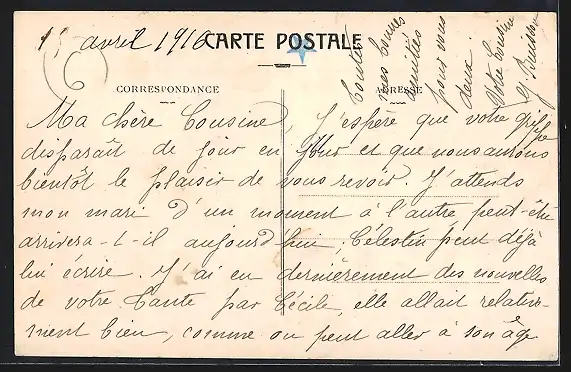 15 avril 1916
CARTE POSTALE
CORRESPONDANCE
ADRESSE
Ma chère Cousine, J'espère que votre grippe
disparaît de jour en jour et que nous aurons
bientôt le plaisir de vous revoir. J'attends
mon mari d'un moment à l'autre peut-être
arrivera-t-il aujourd'hui. Célestin peut déjà
lui écrire. J'ai eu dernièrement des nouvelles
de votre tante par Cécile, elle allait relative-
ment bien, comme on peut aller à son âge
Toutes
nos bonnes
amitiés
pour vous
deux.
Votre cousine